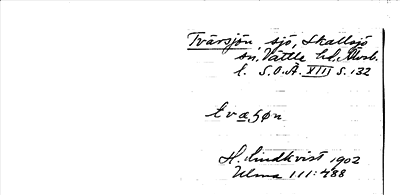 Tvärsjön, sjö, Skallsjö
sn, Vättle hd, Älvsb.
l. S.O.Ä. XIII s. 132
tvæʂøn
H. Lindkvist 1902
Ulma 111:488